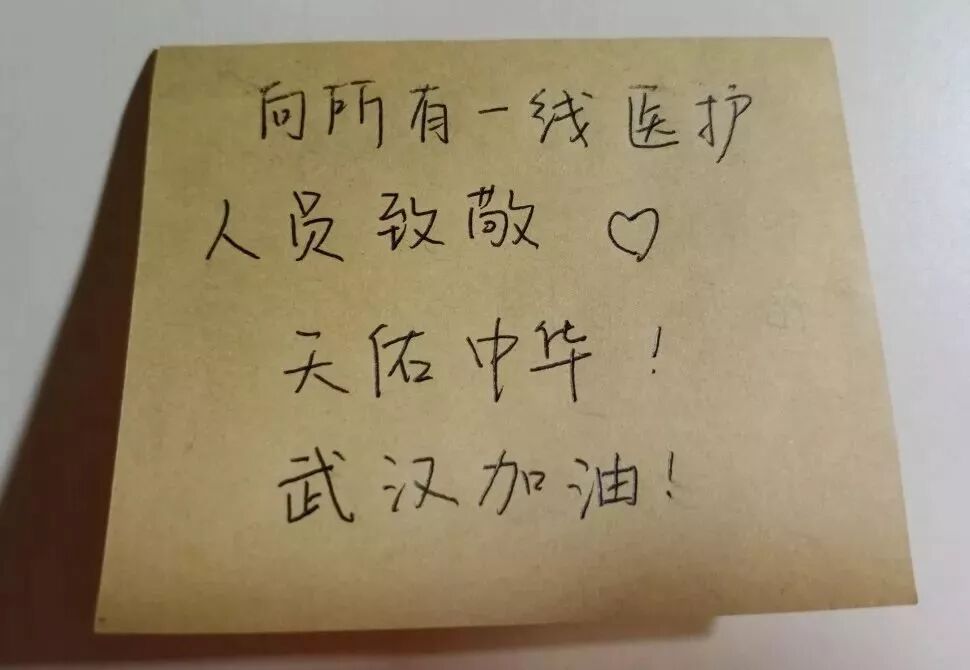 向所有一线医护
人员致敬 ♡
天佑中华！
武汉加油！